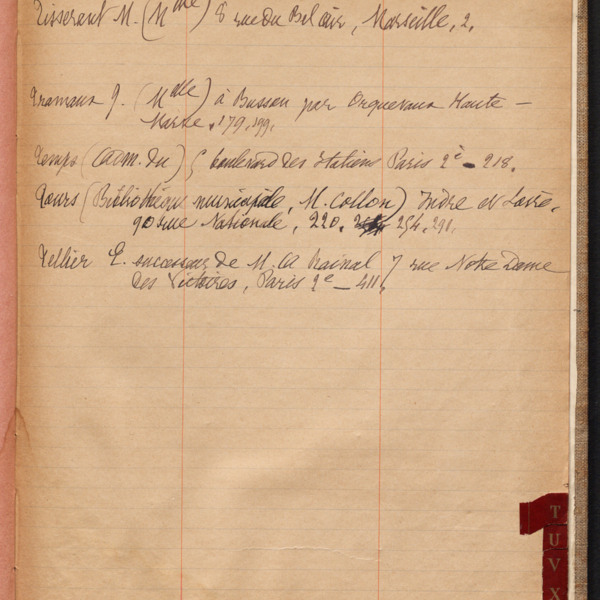 Tisserant M. (Mme) 8 rue du Bel air, Marseille, 2.
Tramaux J. (Mdlle) à Busson par Orquevaux Haute-
Marne, 179, 199.
Temps (Adm. du) 5 boulevard des Italiens Paris 2e - 218.
Tours (Bibliothèque municipale, M. Collon) Indre et Loire,
90 rue Nationale, 220. 254, 291,
Tellier E. successeur de M. A 7 rue Notre Dame
des Victoires, Paris 2e - 411,
T
U
V
X